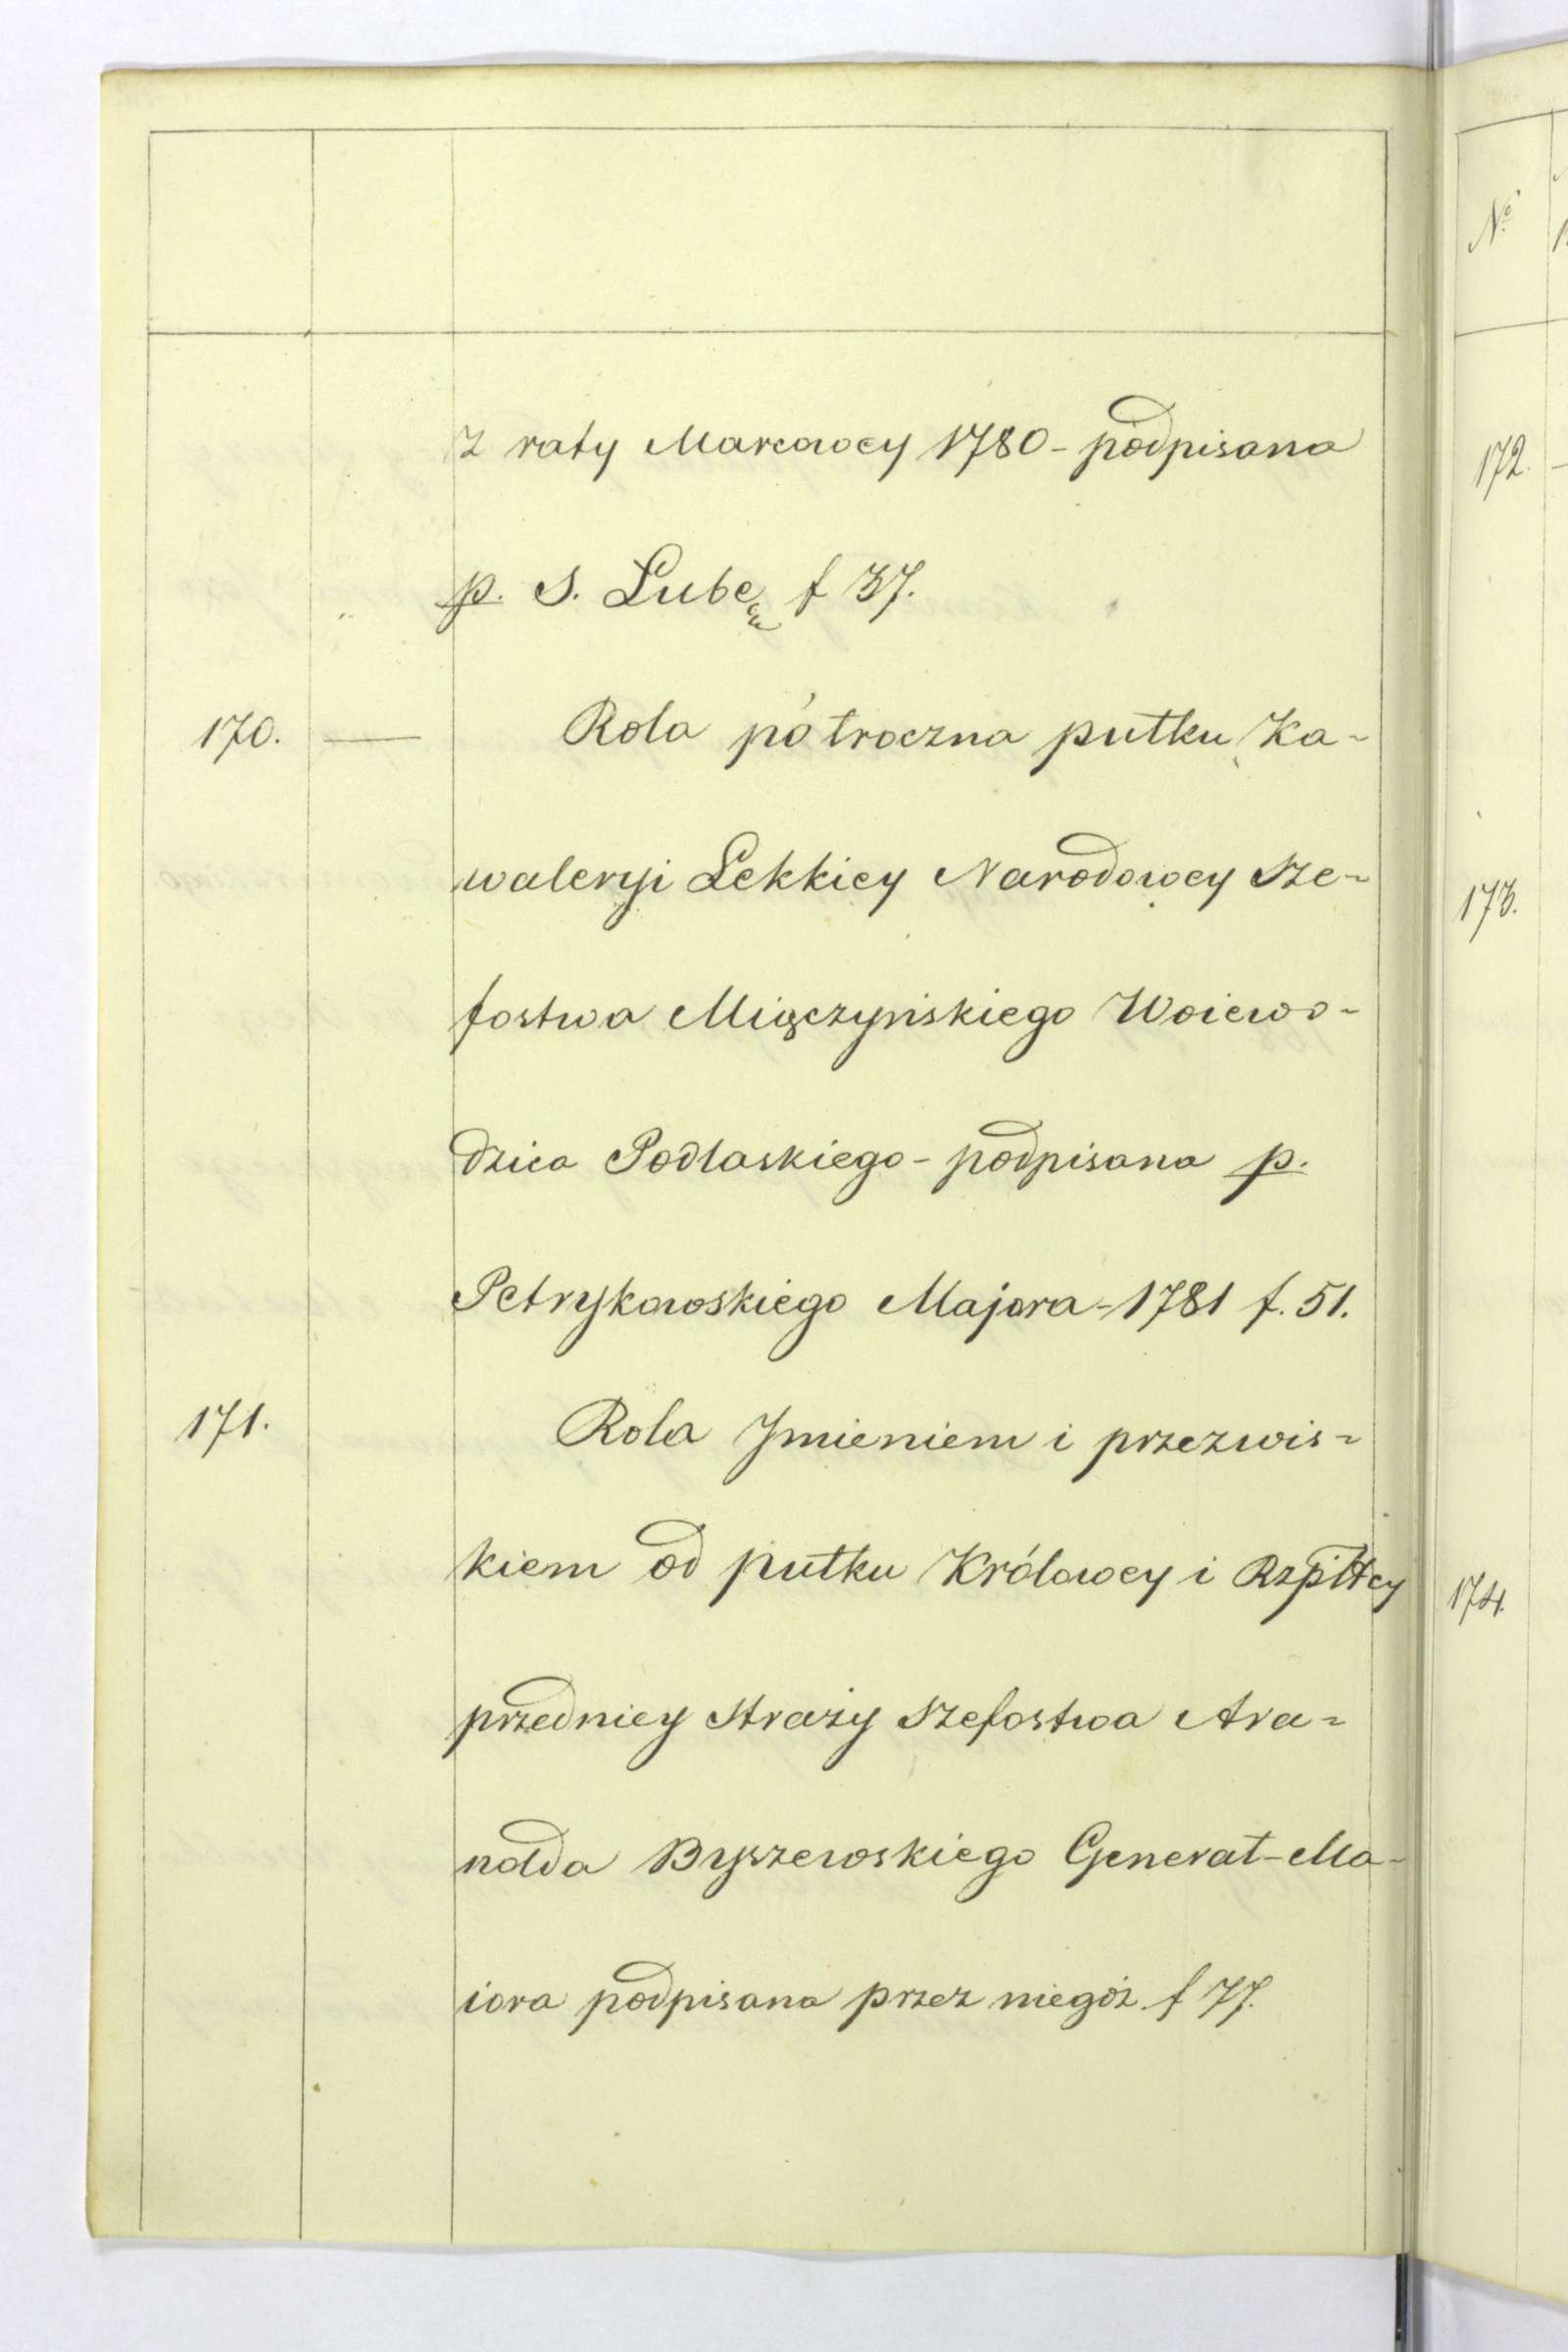 z raty Marcowey 1780 - podpisana
p. S. Lube f 37.
170. — Rola półroczna pułku Ka-
waleryi Lekkiey Narodowey Sze-
fostwa Miączyńskiego Woiewo-
dzica Podlaskiego - podpisana p.
Petrykowskiego Majora - 1781 f. 51.
171. Rola Jmieniem i przezwis-
kiem od pułku Królowey i Rzpltey
przedniey Straży Szefostwa Ara-
nolda Byszewskiego Generał-Ma-
iora podpisana przez niegóż f 77.
No
172. -
173.
174.